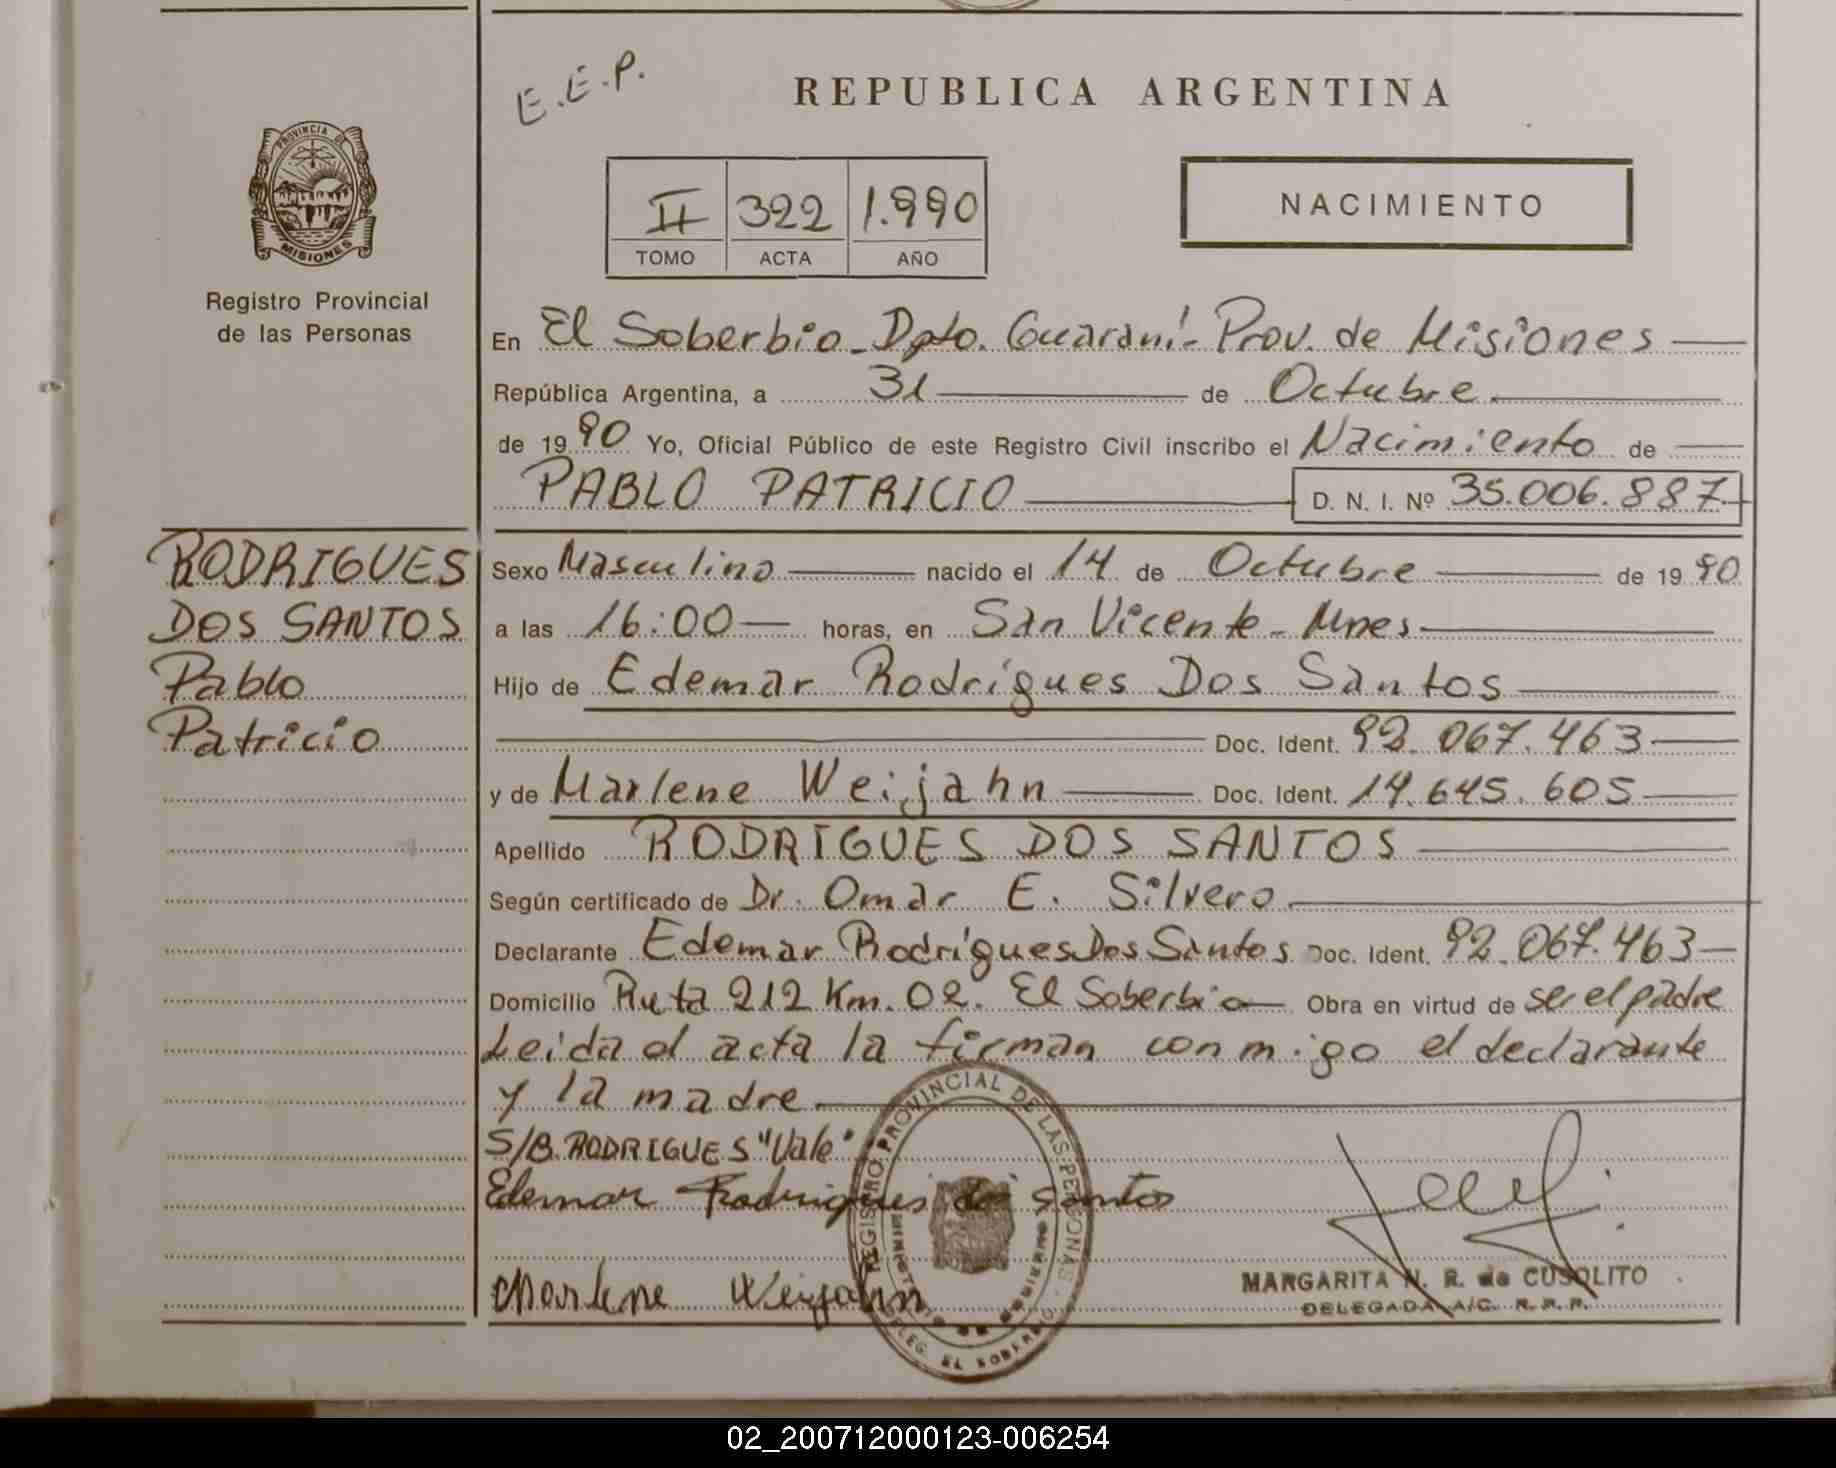 E.E.P.
REPUBLICA ARGENTINA
PROVINCIA DE
MISIONES
Registro Provincial
de las Personas
II 322 1.990
TOMO ACTA AÑO
NACIMIENTO
En El Soberbio - Dpto. Guaraní - Prov. de Misiones
República Argentina, a 31 de Octubre
de 1990 Yo, Oficial Público de este Registro Civil inscribo el Nacimiento de
PABLO PATRICIO D. N. I. Nº 35.006.887
RODRIGUES
DOS SANTOS
Pablo
Patricio
Sexo Masculino nacido el 14 de Octubre de 1990
a las 16:00 horas, en San Vicente - Mnes
Hijo de Edemar Rodrígues Dos Santos
Doc. Ident. 92.067.463
y de Marlene Weijahn Doc. Ident. 14.645.605
Apellido RODRIGUES DOS SANTOS
Según certificado de Dr. Omar E. Silvero
Declarante Edemar Rodrígues Dos Santos Doc. Ident. 92.067.463
Domicilio Ruta 212 Km. 02. El Soberbio Obra en virtud de ser el padre
Leida el acta la firman conmigo el declarante
y la madre
S/B. RODRIGUES "Vale"
Edemar Rodrigues dos santos
Marlene Weijahn
REGISTRO PROVINCIAL DE LAS PERSONAS
DELEG. EL SOBERBIO
MARGARITA N. R. de CUSOLITO
DELEGADA A/C. R.P.P.
02_200712000123-006254